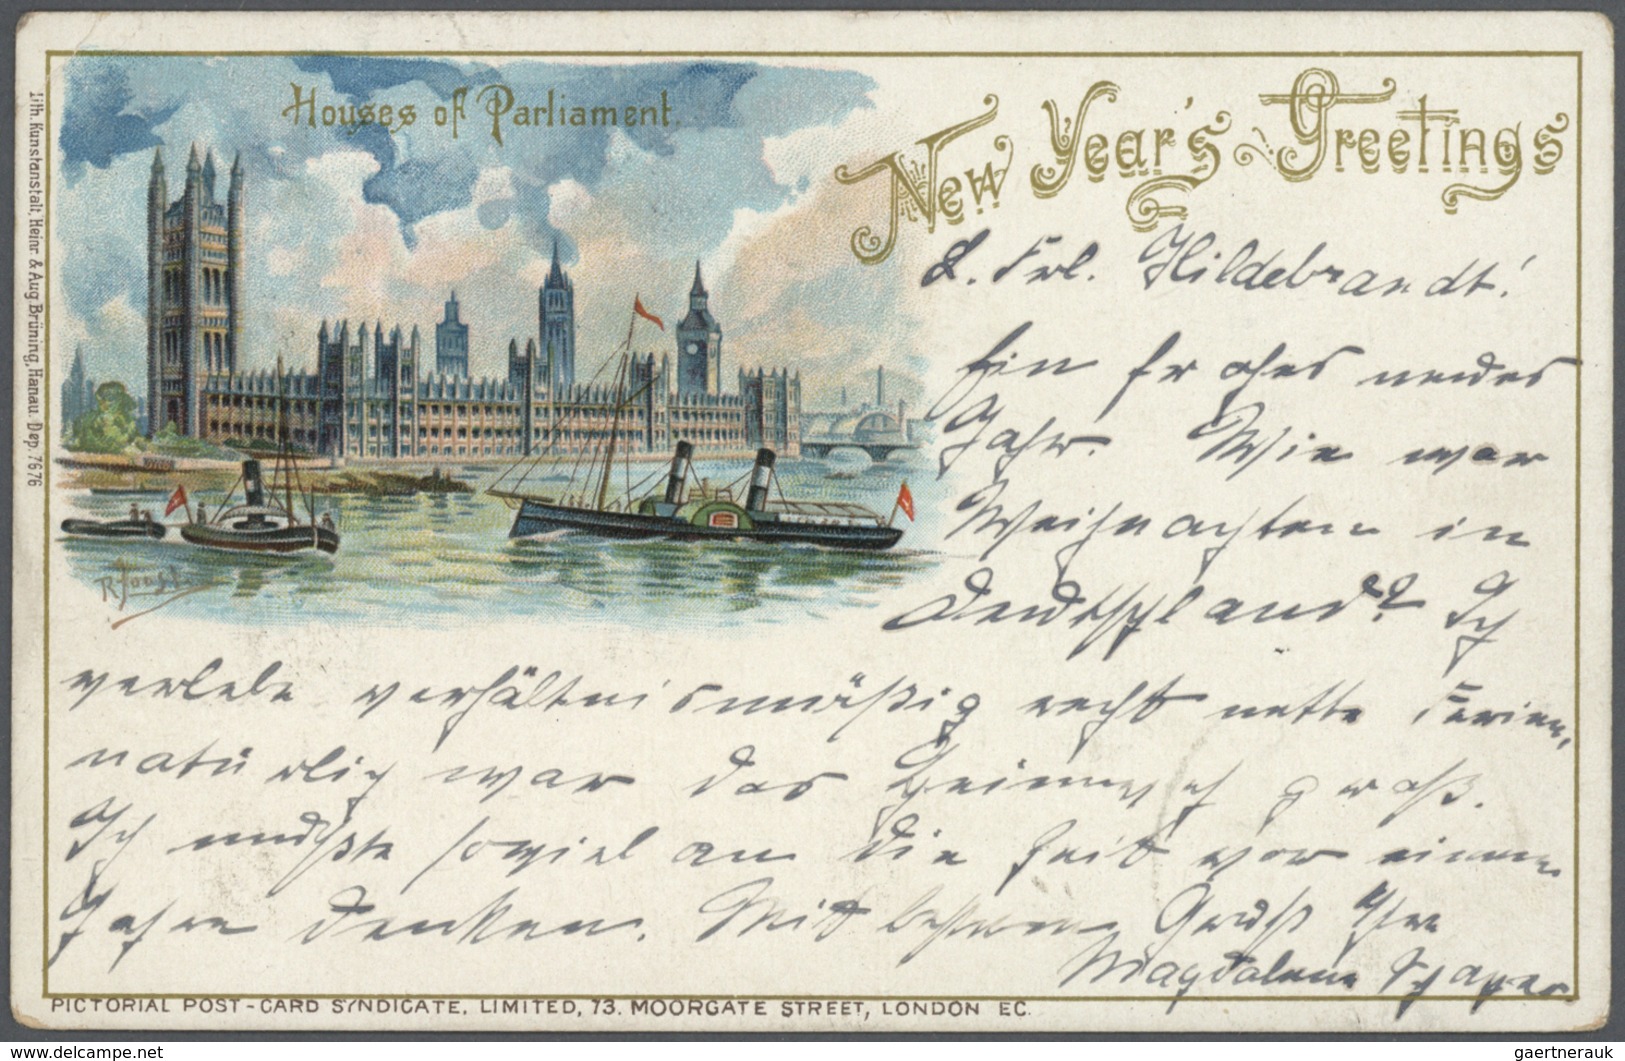 Houses of Parliament.
New Year's Greetings
L. Frl. Hildebrandt!
Ein frohes neues
Jahr. Wie war
Weihnachten in
Deutschland? Ich
verlebe verhältnismäßig recht nette Ferien,
natürlich war das Heimweh groß.
Ich mußte soviel an die Zeit vor einem
Jahre denken. Mit bestem Gruß Ihre
Magdalene
R. Joost
Lith. Kunstanstalt, Heinr. & Aug. Brüning, Hanau. Dep. 7676
PICTORIAL POST-CARD SYNDICATE, LIMITED, 73. MOORGATE STREET, LONDON EC.
delcampe.net
gaertnerauk